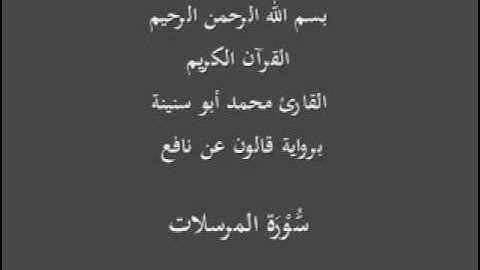 بسم الله الرحمن الرحيم
القرآن الكريم
القارئ محمد أبو سنينة
برواية قالون عن نافع
سُّوْرَة المرسلات